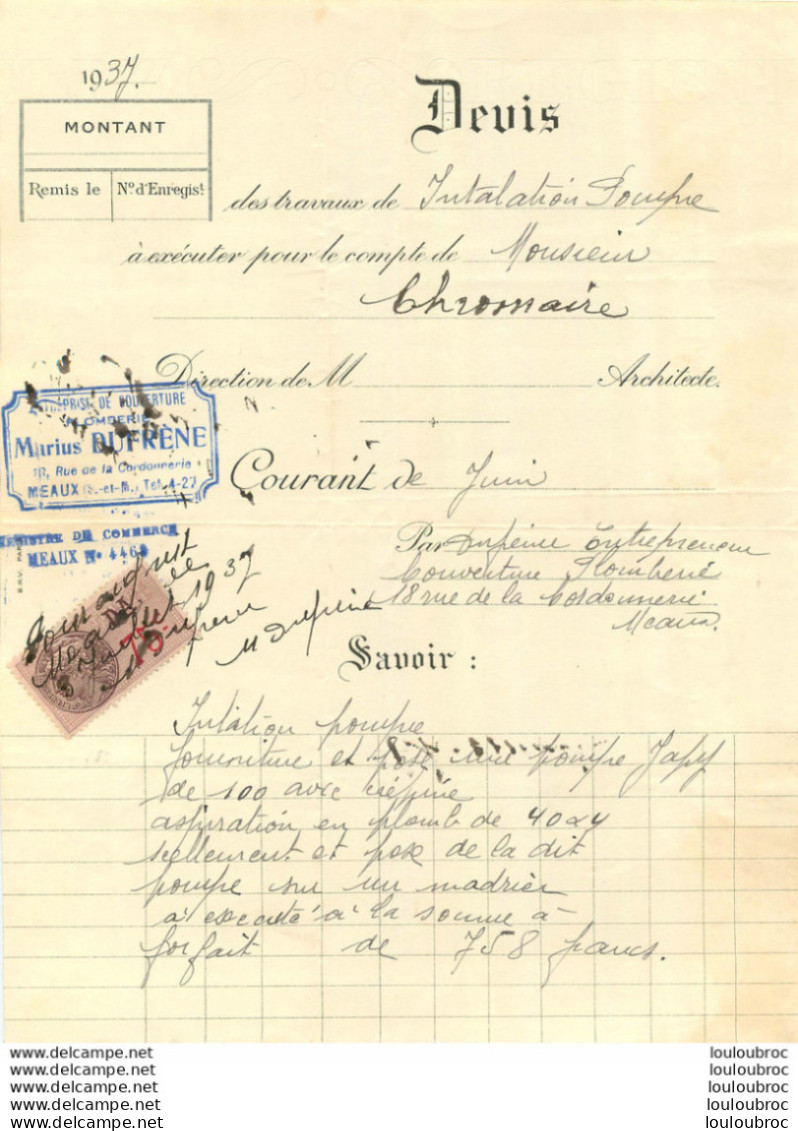 1937.
MONTANT
Remis le
No. d'Enregist.
Devis
des travaux de Intalation Pompe
à exécuter pour le compte de Monsieur
Chromaire
Direction de M Architecte.
ENTREPRISE DE COUVERTURE
PLOMBERIE
Marius DUFRÈNE
18, Rue de la Cordonnerie
MEAUX (S.-et-M.) Tél. 4-27
REGISTRE DE COMMERCE
MEAUX No 446
Courant de Juin
Par Dufrène Entrepreneur
Couverture Plomberie
18 rue de la Cordonnerie
Meaux.
1937
M Dufrène
Savoir :
Intalation pompe
fourniture et pose une pompe Japy
de 100 avec crépine
aspiration en plomb de 40 x 4
scellement et pose de la dit
pompe sur un madrier
a éxecuté à la somme à
forfait de 758 francs.
www.delcampe.net
louloubroc
www.delcampe.net
louloubroc
www.delcampe.net
louloubroc
www.delcampe.net
louloubroc
www.delcampe.net
louloubroc